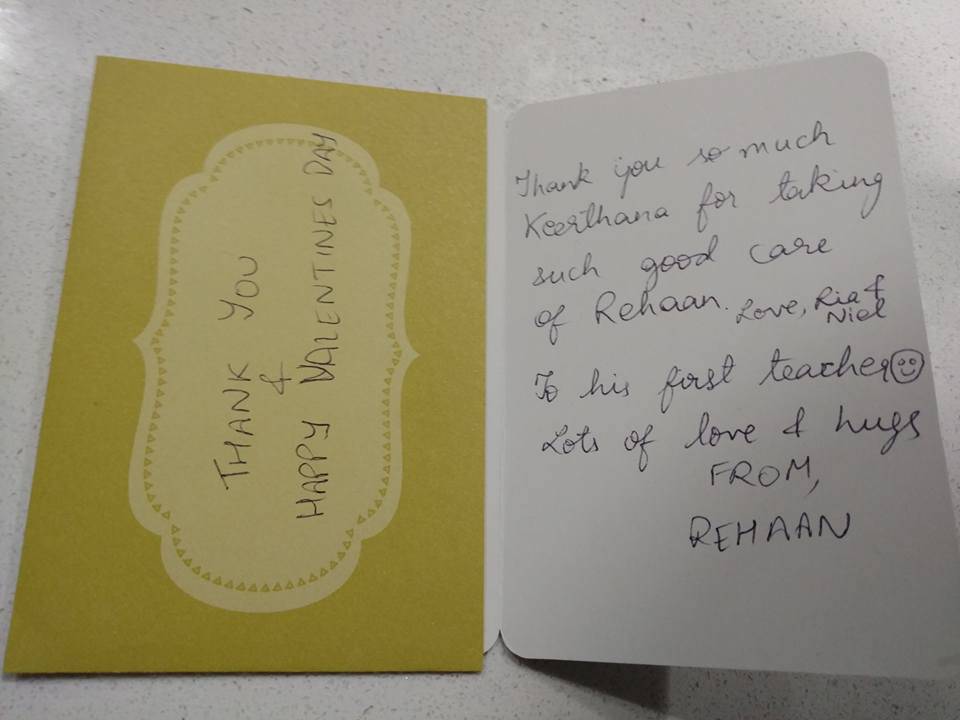 THANK YOU
&
HAPPY VALENTINES DAY
Thank you so much
Keerthana for taking
such good care
of Rehaan. Love, Ria &
Niel
To his first teacher☺
Lots of love & hugs
FROM,
REHAAN